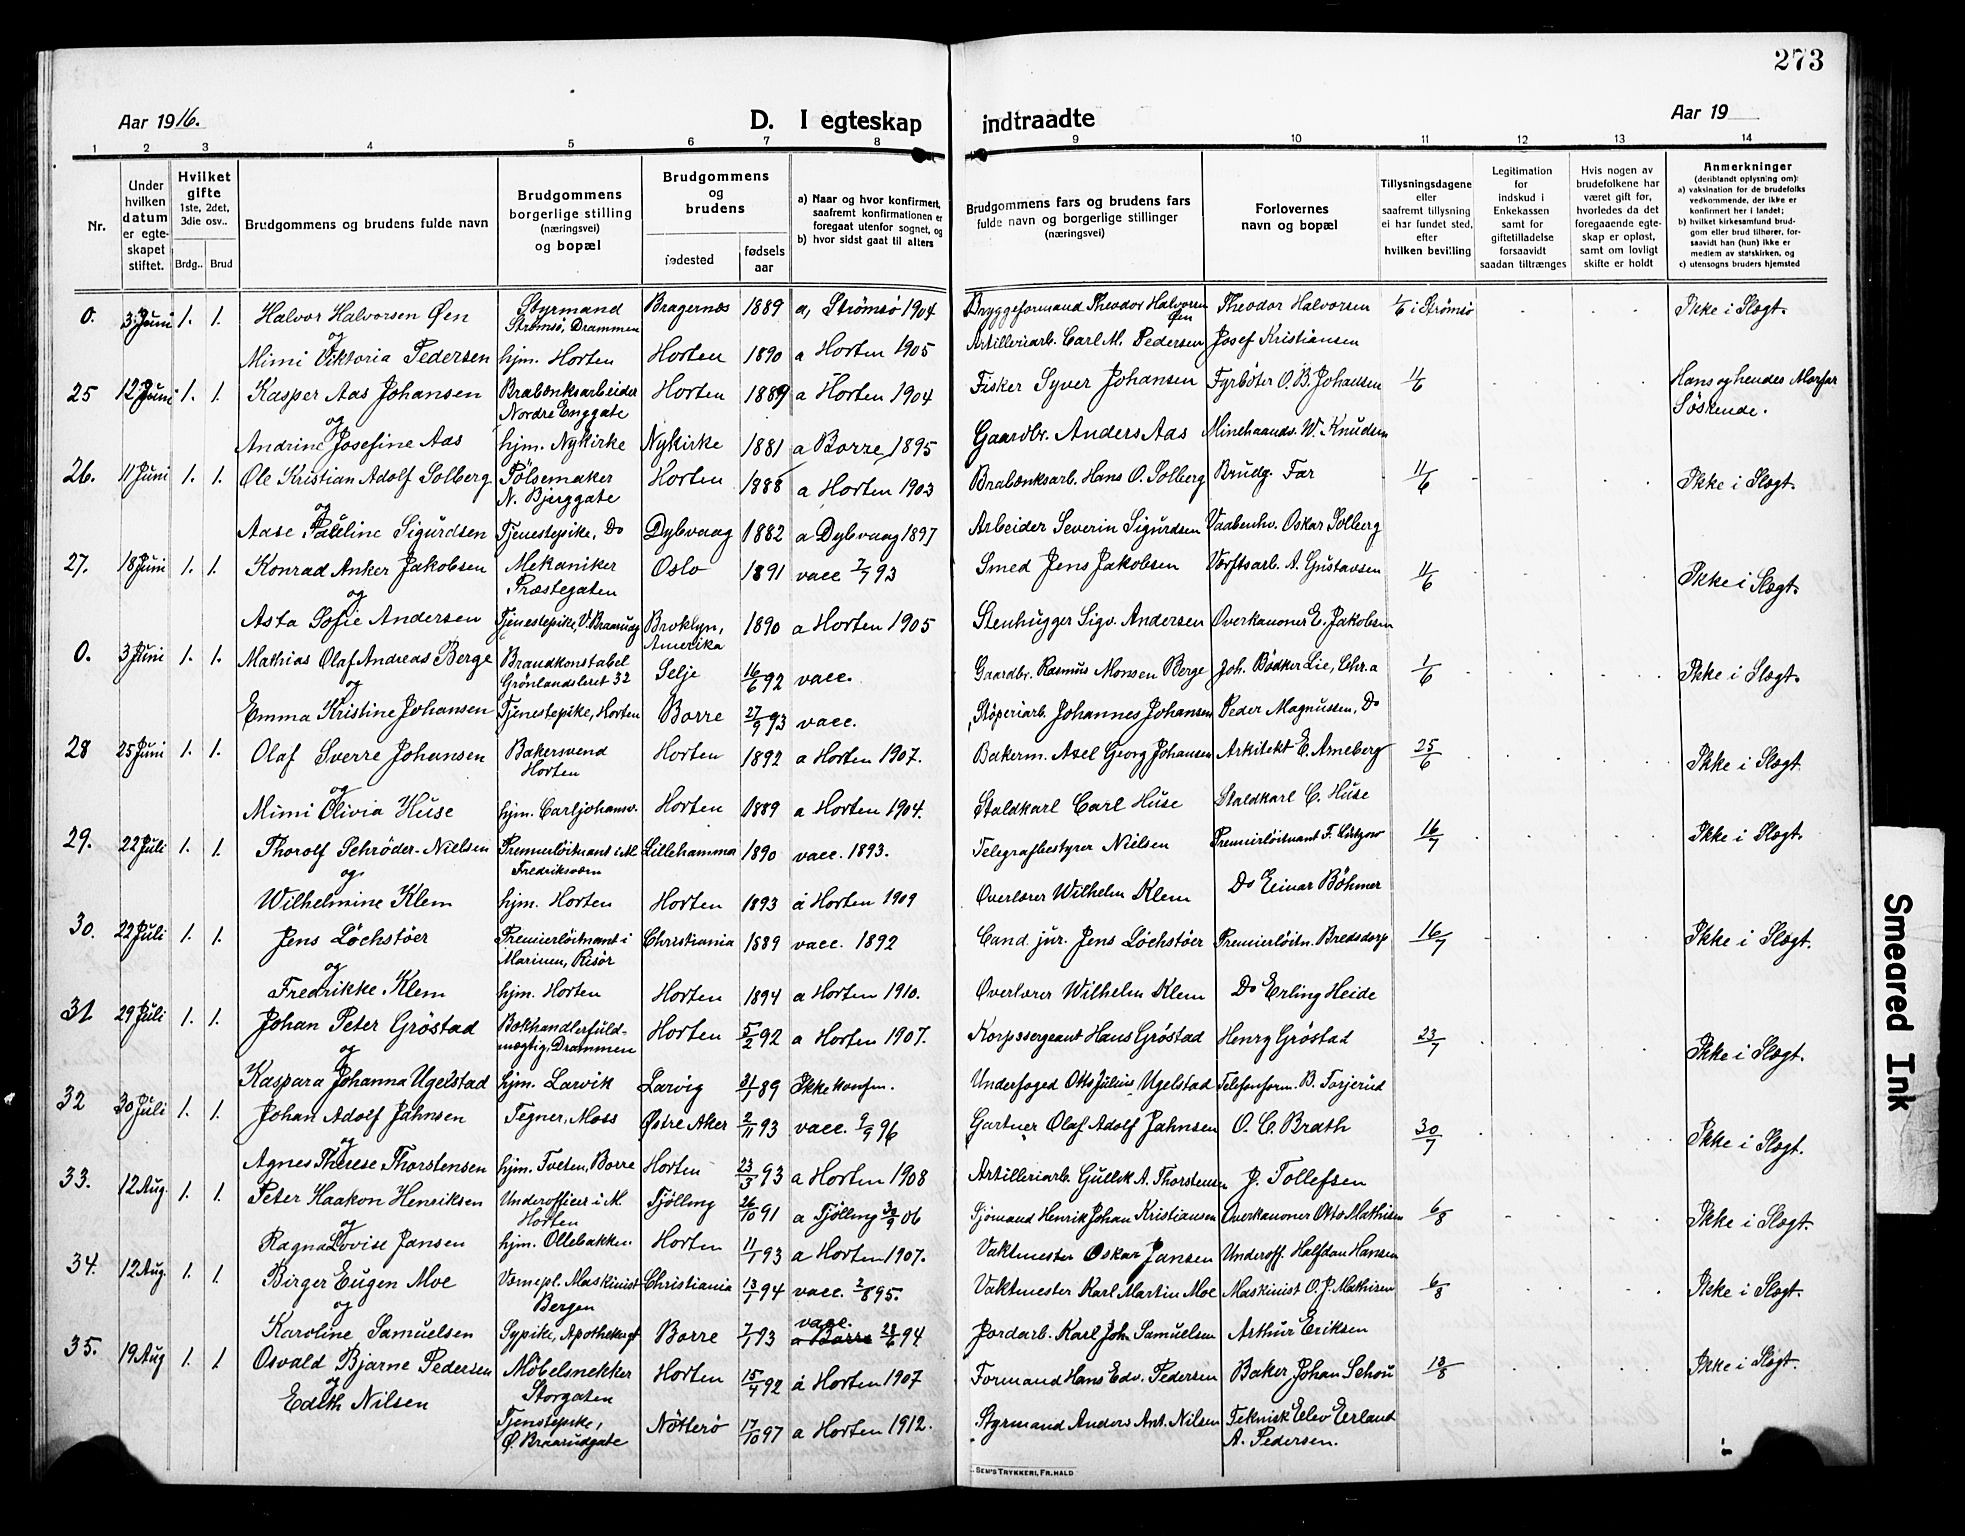 273
Aar 1916.
D. I egteskap indtraadte
Aar 19
1 2 3 4 5 6 7 8 9 10 11 12 13 14
Nr.
Under hvilken datum er egteskapet stiftet.
Hvilket gifte 1ste, 2det, 3die osv..
Brdg.. Brud
Brudgommens og brudens fulde navn
Brudgommens borgerlige stilling (næringsvei) og bopæl
Brudgommens og brudens
fødested
fødsels aar
a) Naar og hvor konfirmert, saafremt konfirmationen er foregaat utenfor sognet, og
b) hvor sidst gaat til alters
Brudgommens fars og brudens fars fulde navn og borgerlige stillinger (næringsvei)
Forlovernes navn og bopæl
Tillysningsdagene eller saafremt tillysning ei har fundet sted, efter hvilken bevilling
Legitimation for indskud i Enkekassen samt for giftetilladelse forsaavidt saadan tiltrænges
Hvis nogen av brudefolkene har været gift før, hvorledes da det foregaaende egteskap er opløst, samt om lovligt skifte er holdt
Anmerkninger (deriblandt oplysning om): a) vaksination for de brudefolks vedkommende, der ikke er konfirmert her i landet; b) hvilket kirkesamfund brudgom eller brud tilhører, forsaavidt han (hun) ikke er medlem av statskirken, og c) utensogns bruders hjemsted
0. 3 Juni 1. 1. Halvor Halvorsen Øen Styrmand Strømsø, Drammen Bragernes 1889 a, Strømsø 1904 Bryggeformand Theodor Halvorsen Øen Theodor Halvorsen 1/6 i Strømsø Ikke i Slægt.
og
Mimi Viktoria Pedersen hjm. Horten Horten 1890 a Horten 1905 Artilleriarb. Carl M. Pedersen Josef Kristiansen
25 12 Juni 1. 1. Kasper Aas Johansen Brabænksarbeider Nordre Enggate Horten 1889 a Horten 1904 Fisker Syver Johansen Fyrbøter O. B. Johansen 11/6 Hans og hendes Morfar Søskende.
og
Andrine Josefine Aas hjm. Nykirke Nykirke 1881 a Borre 1895 Gaardbr. Anders Aas Minehaands. W. Knudsen
26. 11 Juni 1. 1. Ole Kristian Adolf Solberg Pølsemaker N. Bjerggate Horten 1888 a Horten 1903 Brabænksarb. Hans O. Solberg Brudg. Far 11/6 Ikke i Slægt.
og
Aase Pauline Sigurdsen Tjenestepike, Do Dybvaag 1882 a Dybvaag 1897 Arbeider Severin Sigurdsen Vaabenhv. Oskar Solberg
27. 18 Juni 1. 1. Konrad Anker Jakobsen Mekaniker Præstegaten Oslo 1891 vacc 2/7 93 Smed Jens Jakobsen Værftsarb. A. Gustavsen 11/6 Ikke i Slægt.
og
Asta Sofie Andersen Tjenestepike, V. Braarudg Broklyn, Amerika 1890 a Horten 1905 Stenhugger Sigv. Andersen Overkanoner E. Jakobsen
0. 3 Juni 1. 1. Mathias Olaf Andreas Berge Brandkonstabel Grønlandsleret 32 Selje 16/6 92 vacc. Gaardbr. Rasmus Monsen Berge Joh. Bödker Lie, Chr.a 1/6 Ikke i Slægt.
og
Emma Kristine Johansen Tjenestepike, Horten Borre 27/9 93 vacc. Støperiarb. Johannes Johansen Peder Magnussen, Do
28 25 Juni 1. 1. Olaf Sverre Johansen Bakersvend Horten Horten 1892 a Horten 1907. Bakerm. Axel Georg Johansen Arkitekt E. Arneberg 25/6 Ikke i Slægt
og
Mimi Olivia Huse hjm. Carljohansv. Horten 1889 a Horten 1904. Staldkarl Carl Huse Staldkarl C. Huse
29. 22 Juli 1. 1. Thorolf Schrøder-Nielsen Premierløitnant i M. Fredriksværn Lillehammer 1890 vacc. 1893. Telegrafbestyrer Nielsen Premierløitnant F. Lützow 16/7 Ikke i Slægt.
og
Wilhelmine Klem hjm. Horten Horten 1893 a Horten 1909 Overlærer Wilhelm Klem Do Einar Böhmer
30. 22 Juli 1. 1. Jens Løchstøer Premierløitnant i Marinen, Risör Christiania 1889 vacc. 1892 Cand. jur. Jens Løchstøer Premierløitn. Bredsdorp 16/7 Ikke i Slægt.
og
Fredrikke Klem hjm. Horten Horten 1894 a Horten 1910. Overlærer Wilhelm Klem Do Erling Heide
31 29 Juli 1. 1. Johan Peter Grøstad Bokhandlerfuldmægtig, Drammen Horten 5/2 92 a Horten 1907. Korpssergeant Hans Grøstad Henry Grøstad 23/7 Ikke i Slægt.
og
Kaspara Johanna Ugelstad hjm. Larvik Larvig 31/1 89 Ikke konfm. Underfoged Otto Julius Ugelstad Telefonform. B. Torjerud
32 30 Juli 1. 1. Johan Adolf Jahnsen Tegner, Moss Østre Aker 2/11 93 vacc. 9/9 96 Gartner Olaf Adolf Jahnsen O. C. Brath 30/7 Ikke i Slægt.
og
Agnes Therese Thorstensen hjm. Tveten, Borre Horten 23/3 93 a Horten 1908 Artilleriarb. Gullik A. Thorstensen J. Tollefsen
33. 12 Aug. 1. 1. Peter Haakon Henriksen Underofficer i M. Horten Tjølling 26/10 91 a Tjølling 30/9 06 Sjømand Henrik Johan Kristiansen Overkanoner Otto Mathisen 6/8 Ikke i Slægt.
og
Ragna Lovise Jansen hjm. Ollebakken Horten 11/1 93 a Horten 1907. Vaktmester Oskar Jansen Underoff. Halfdan Hansen
34. 12 Aug. 1. 1. Birger Eugen Moe Værnepl. Maskinist Bergen Christiania 13/1 94 vacc. 2/8 95. Vaktmester Karl Martin Moe Maskinist O. J. Mathisen 6/8 Ikke i Slægt.
og
Karoline Samuelsen Sypike, Apothekergt Borre 7/1 93 vacc. a Borre 28/6 94 Jordarb. Karl Joh. Samuelsen Arthur Eriksen
35. 19 Aug 1. 1. Osvald Bjarne Pedersen Möbelsnekker Storgaten Horten 15/4 92 a Horten 1907 Formand Hans Edv. Pedersen Baker Johan Schou 13/8 Ikke i Slægt.
og
Edith Nilsen Tjenstepike, Ø. Braarudgate Nötterö 17/10 97 a Horten 1912. Styrmand Anders Ant. Nilsen Teknisk Elev Erland A. Pedersen.
SEM'S TRYKKERI, FR. HALD
Smeared Ink